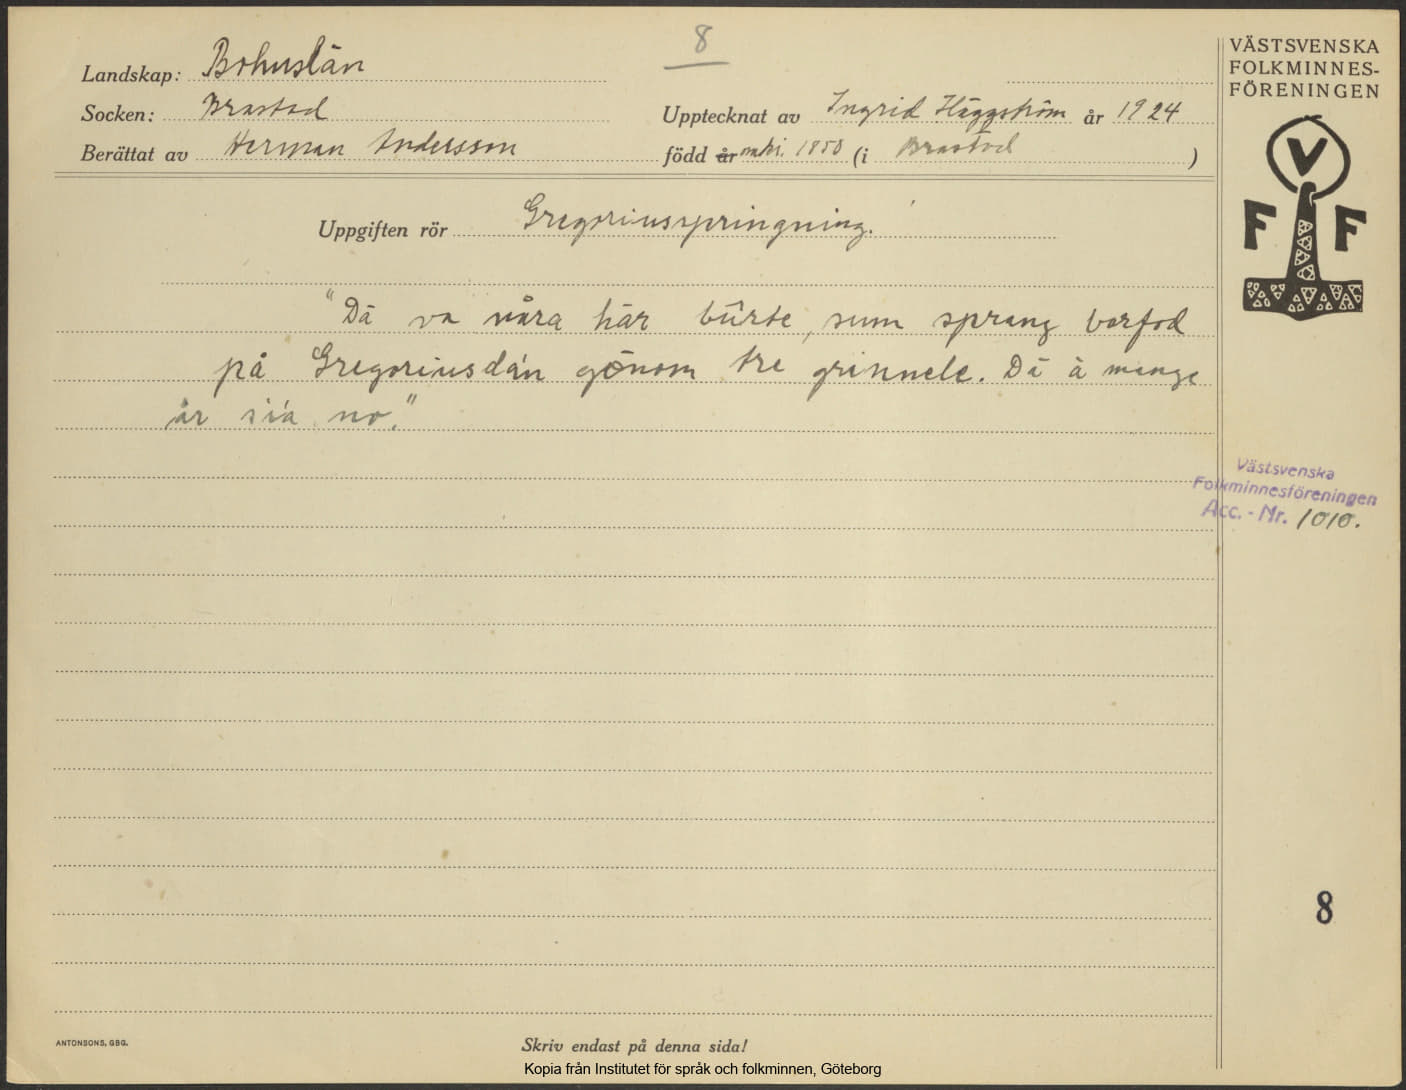 8
VÄSTSVENSKA
FOLKMINNES-
FÖRENINGEN
Landskap: Bohuslän
Socken: Brastad
Upptecknat av Ingrid Häggström år 1924
Berättat av Herman Andersson
född år omkr. 1850 (i Brastad)
V
F F
Uppgiften rör Gregoriusspringning.
"Dä va våra här bûrte, sum sprang barfod
på Gregoriusdán gönom tre grinnele. Dä ä mange
år sia no."
Västsvenska
Folkminnesföreningen
Acc.-Nr. 1010.
8
ANTONSONS, GBG.
Skriv endast på denna sida!
Kopia från Institutet för språk och folkminnen, Göteborg